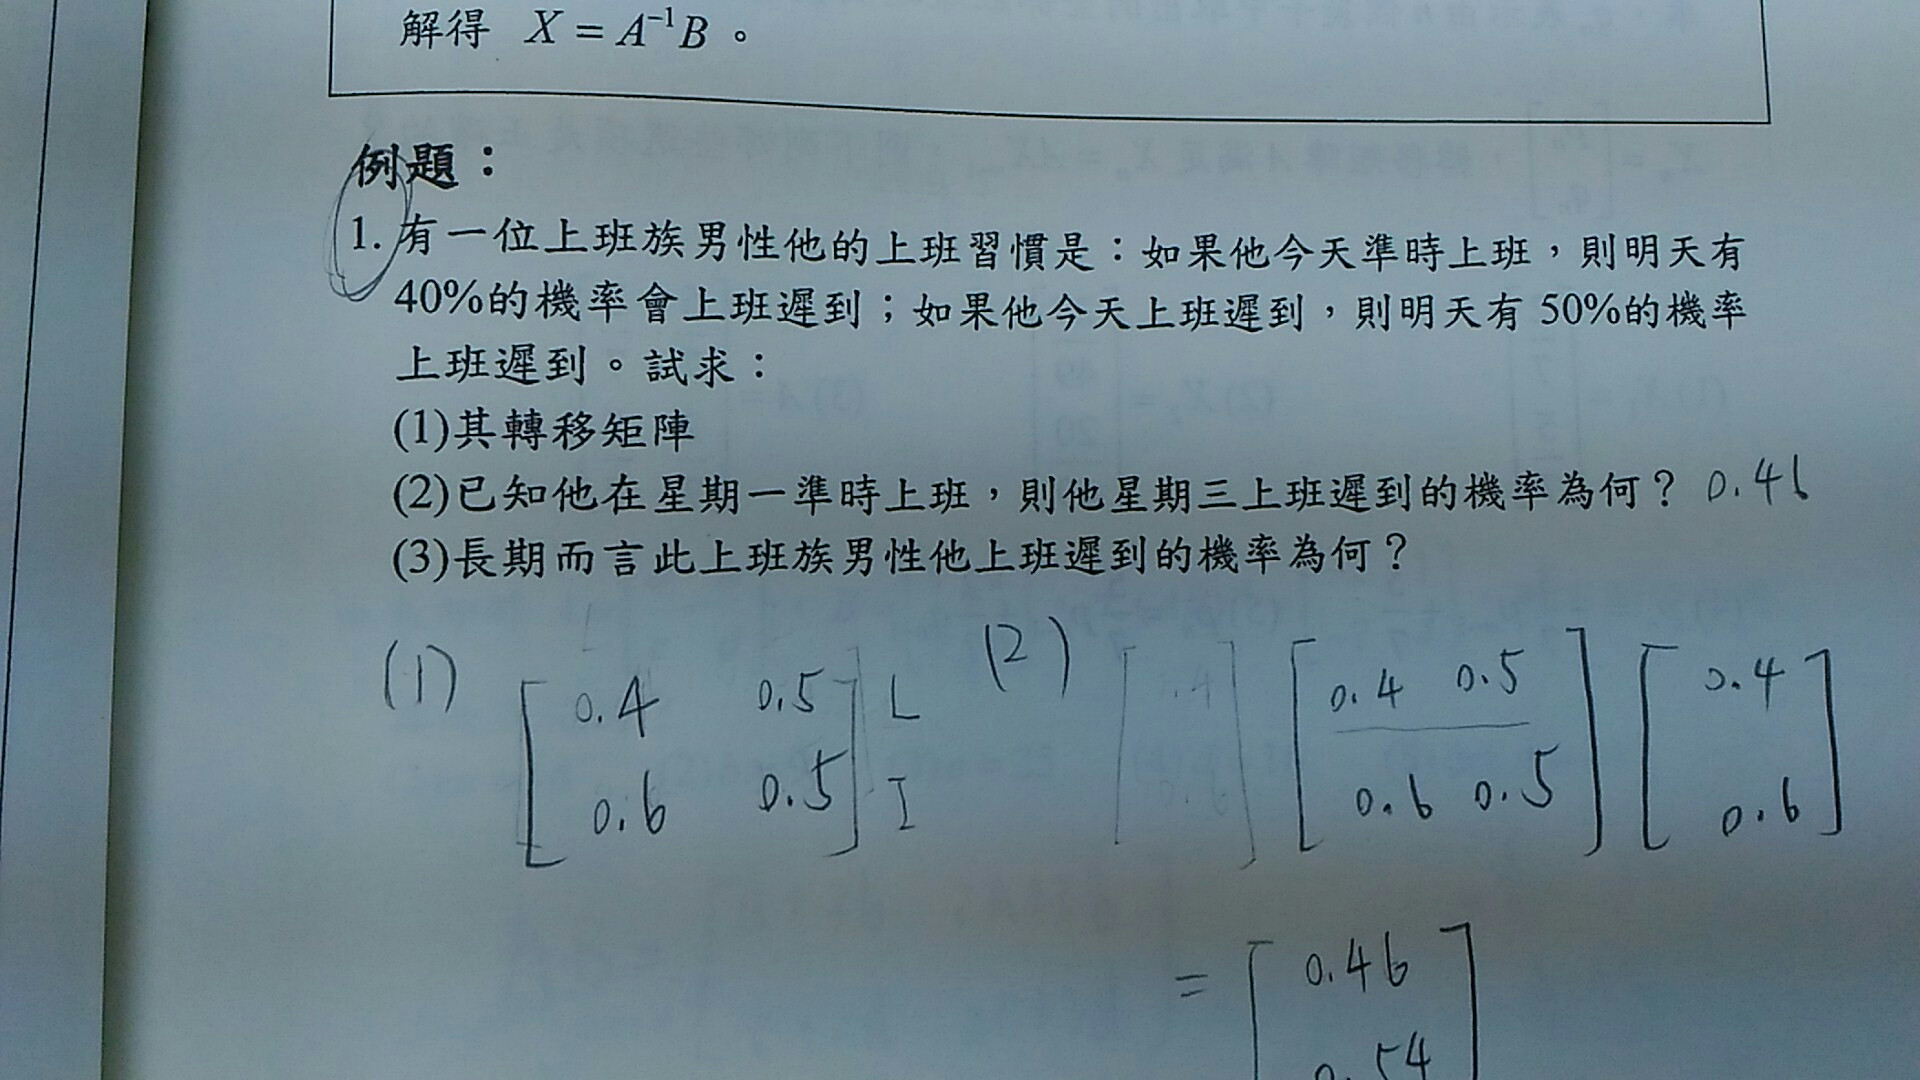 解得 X = A⁻¹B。
例題：
1. 有一位上班族男性他的上班習慣是：如果他今天準時上班，則明天有
40%的機率會上班遲到；如果他今天上班遲到，則明天有 50%的機率
上班遲到。試求：
(1)其轉移矩陣
(2)已知他在星期一準時上班，則他星期三上班遲到的機率為何？ 0.46
(3)長期而言此上班族男性他上班遲到的機率為何？
(1)
0.4 0.5 L
0.6 0.5 I
(2)
0.4 0.5 0.4
0.6 0.5 0.6
= 0.46
0.54